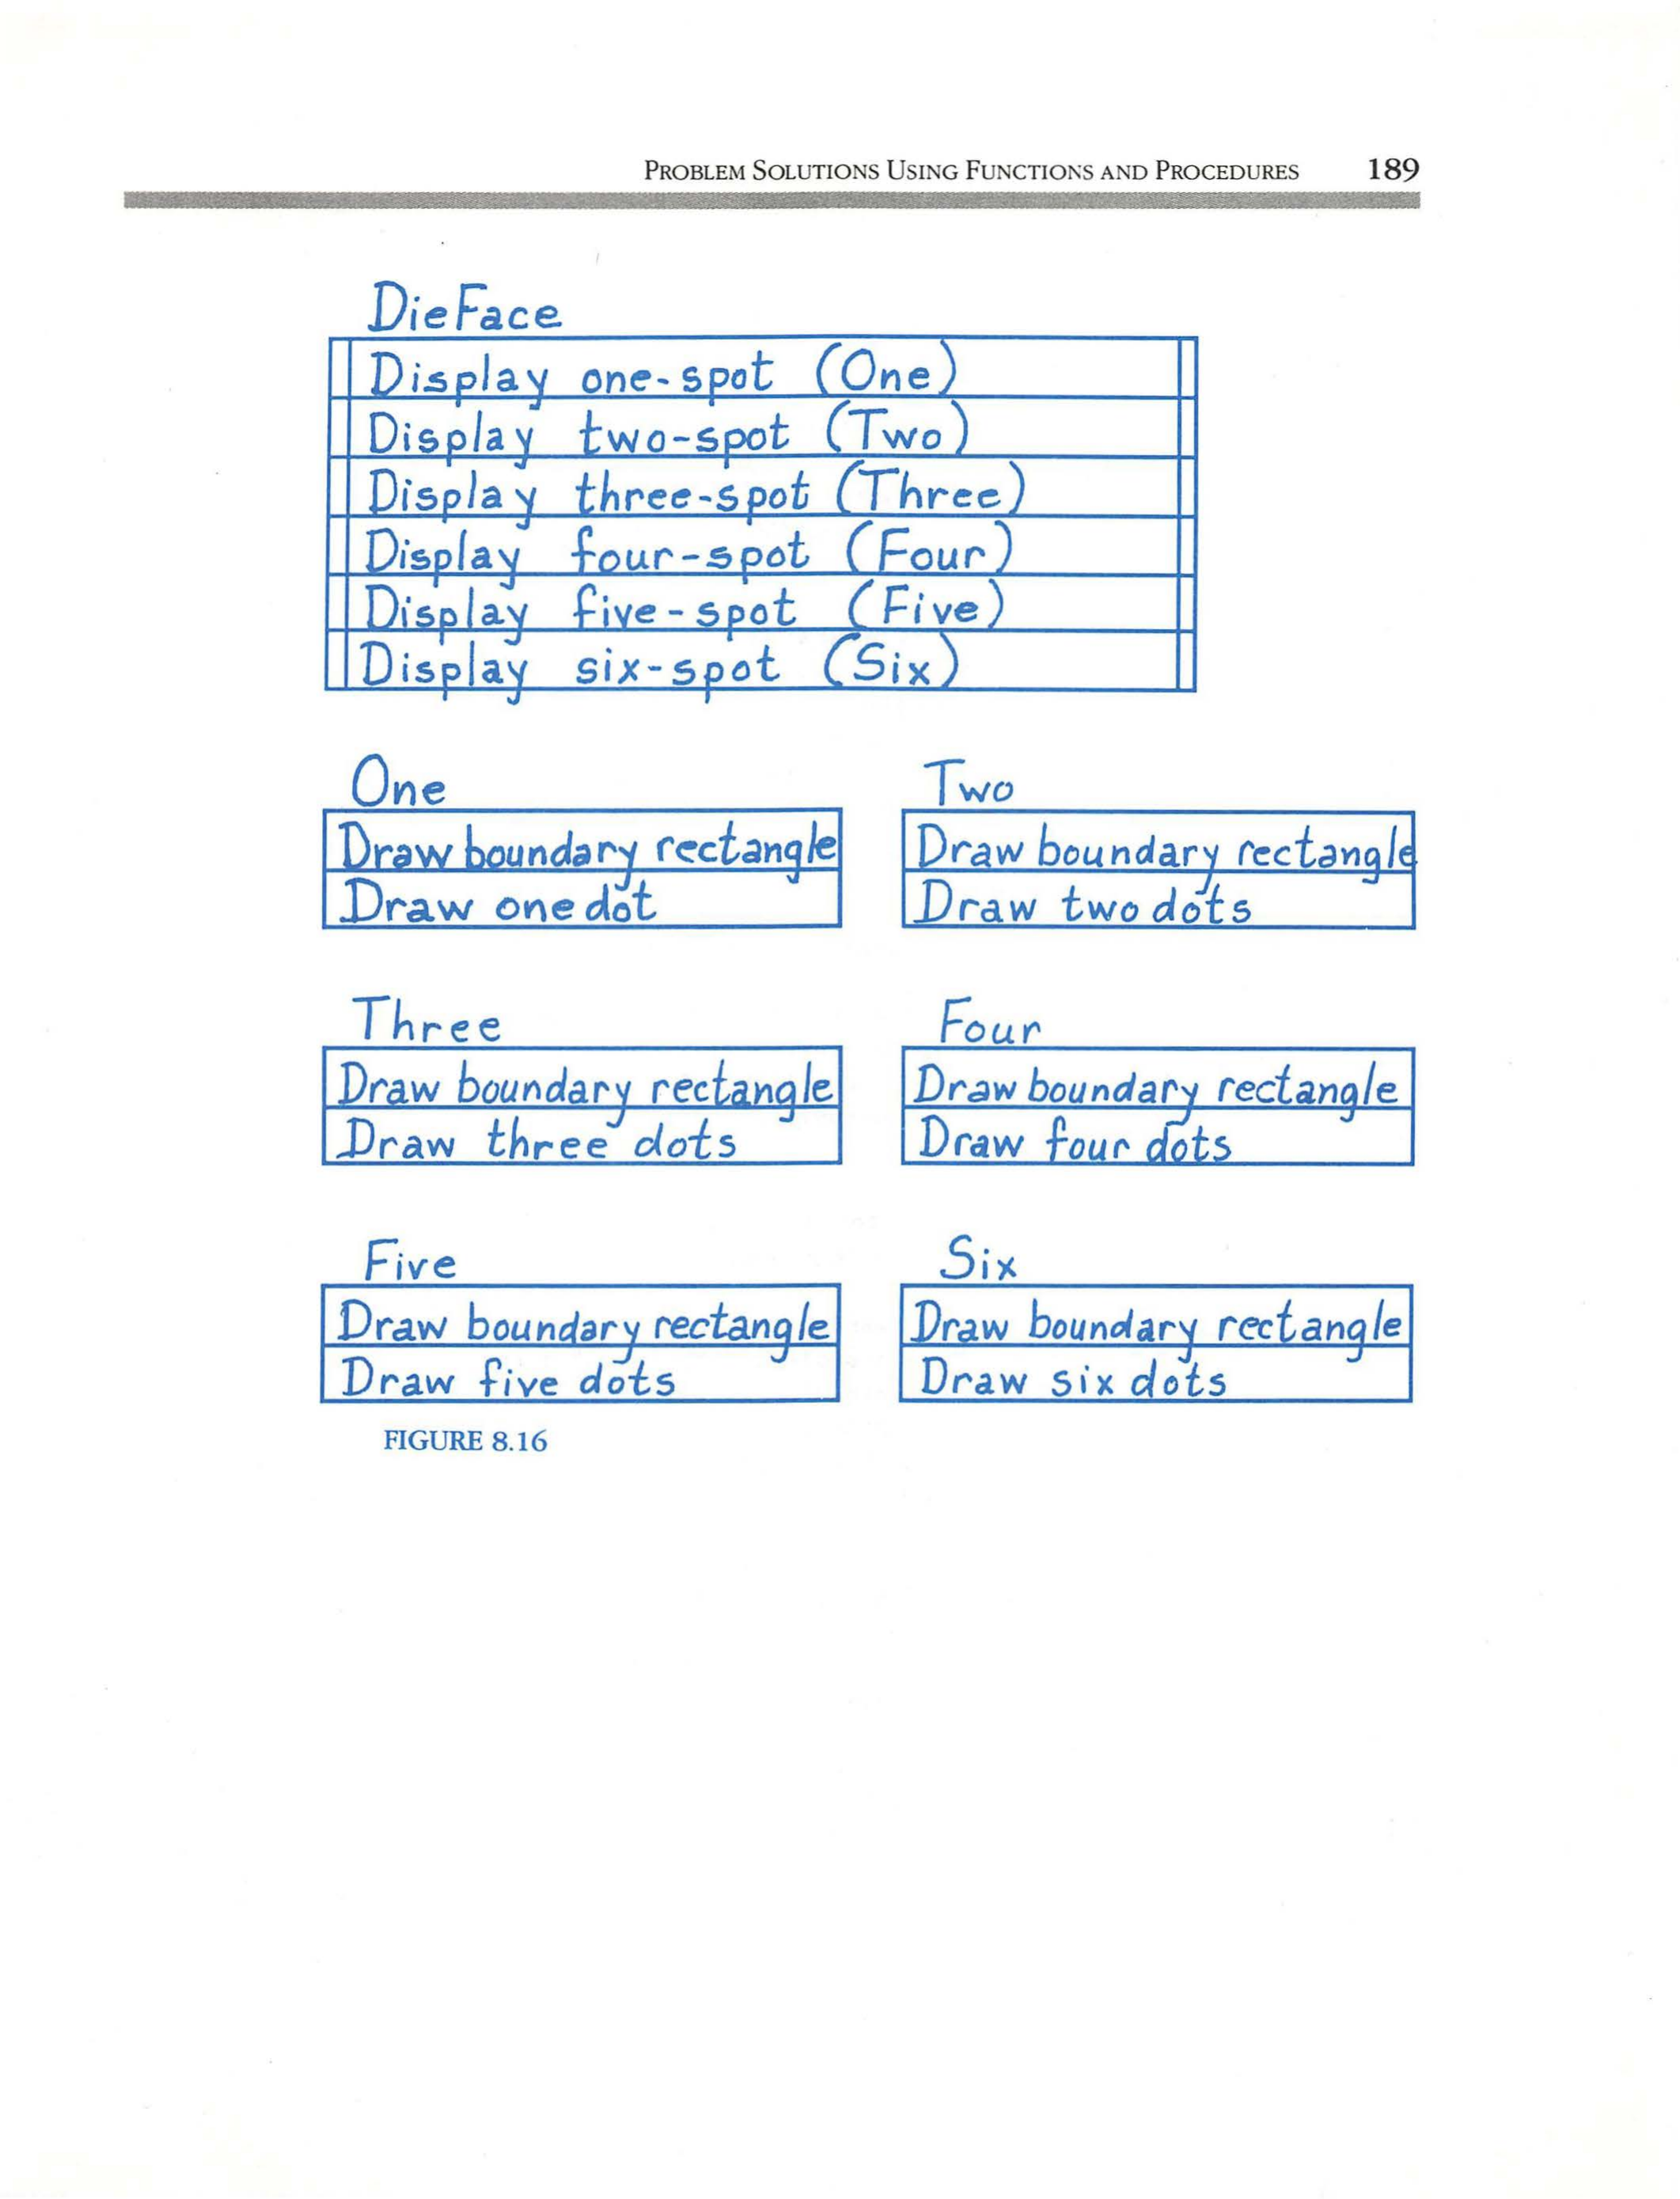 PROBLEM SOLUTIONS USING FUNCTIONS AND PROCEDURES 189
DieFace
Display one-spot (One)
Display two-spot (Two)
Display three-spot (Three)
Display four-spot (Four)
Display five-spot (Five)
Display six-spot (Six)
One
Draw boundary rectangle
Draw one dot
Two
Draw boundary rectangle
Draw two dots
Three
Draw boundary rectangle
Draw three dots
Four
Draw boundary rectangle
Draw four dots
Five
Draw boundary rectangle
Draw five dots
Six
Draw boundary rectangle
Draw six dots
FIGURE 8.16